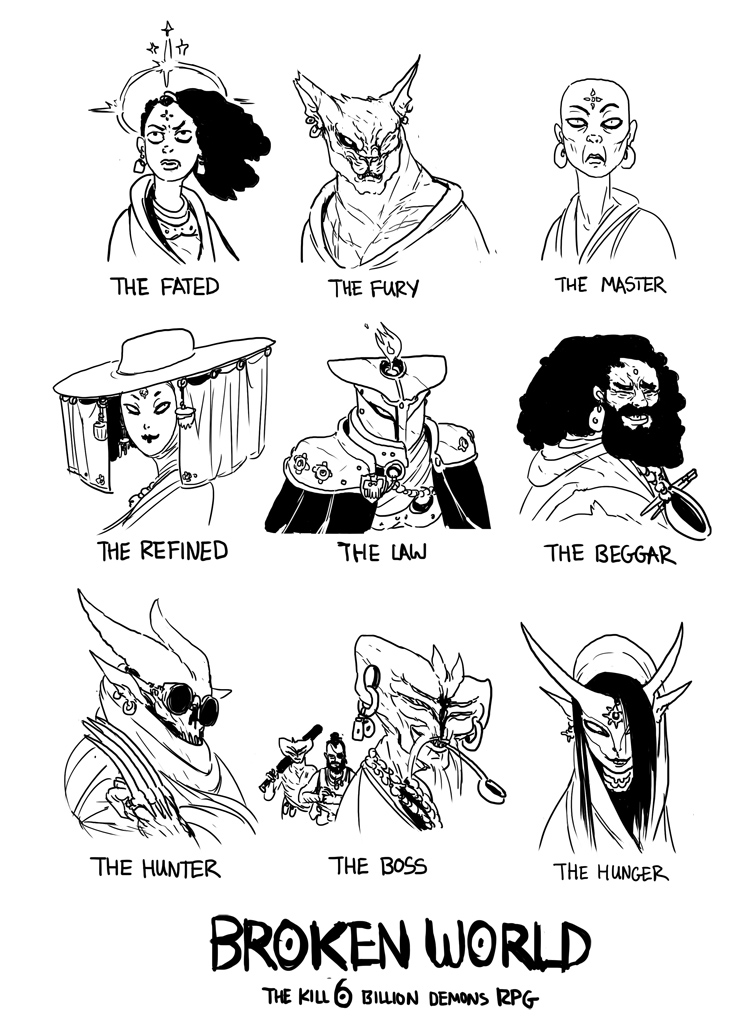 THE FATED
THE FURY
THE MASTER
THE REFINED
THE LAW
THE BEGGAR
THE HUNTER
THE BOSS
THE HUNGER
BROKEN WORLD
THE KILL 6 BILLION DEMONS RPG